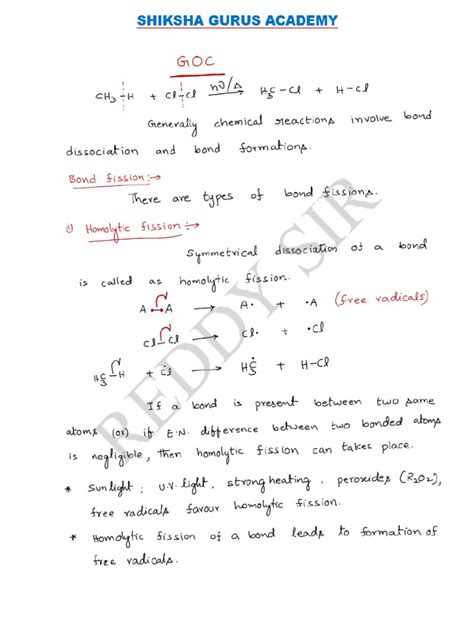 SHIKSHA GURUS ACADEMY
GOC
CH₃–H + Cl–Cl hν/Δ→ H₃C–Cl + H–Cl
Generally chemical reactions involve bond
dissociation and bond formations.
Bond fission:→
There are types of bond fissions.
1) Homolytic fission:→
Symmetrical dissociation of a bond
is called as homolytic fission.
A–A → A• + •A (free radicals)
Cl–Cl → Cl• + •Cl
H₃C–H + •Cl → H₃C• + H–Cl
If a bond is present between two same
atoms (or) if E.N. difference between two bonded atoms
is negligible, then homolytic fission can takes place.
* Sunlight, U.V. light, strong heating, peroxides (R₂O₂),
free radicals favour homolytic fission.
* Homolytic fission of a bond leads to formation of
free radicals.
REDDY SIR